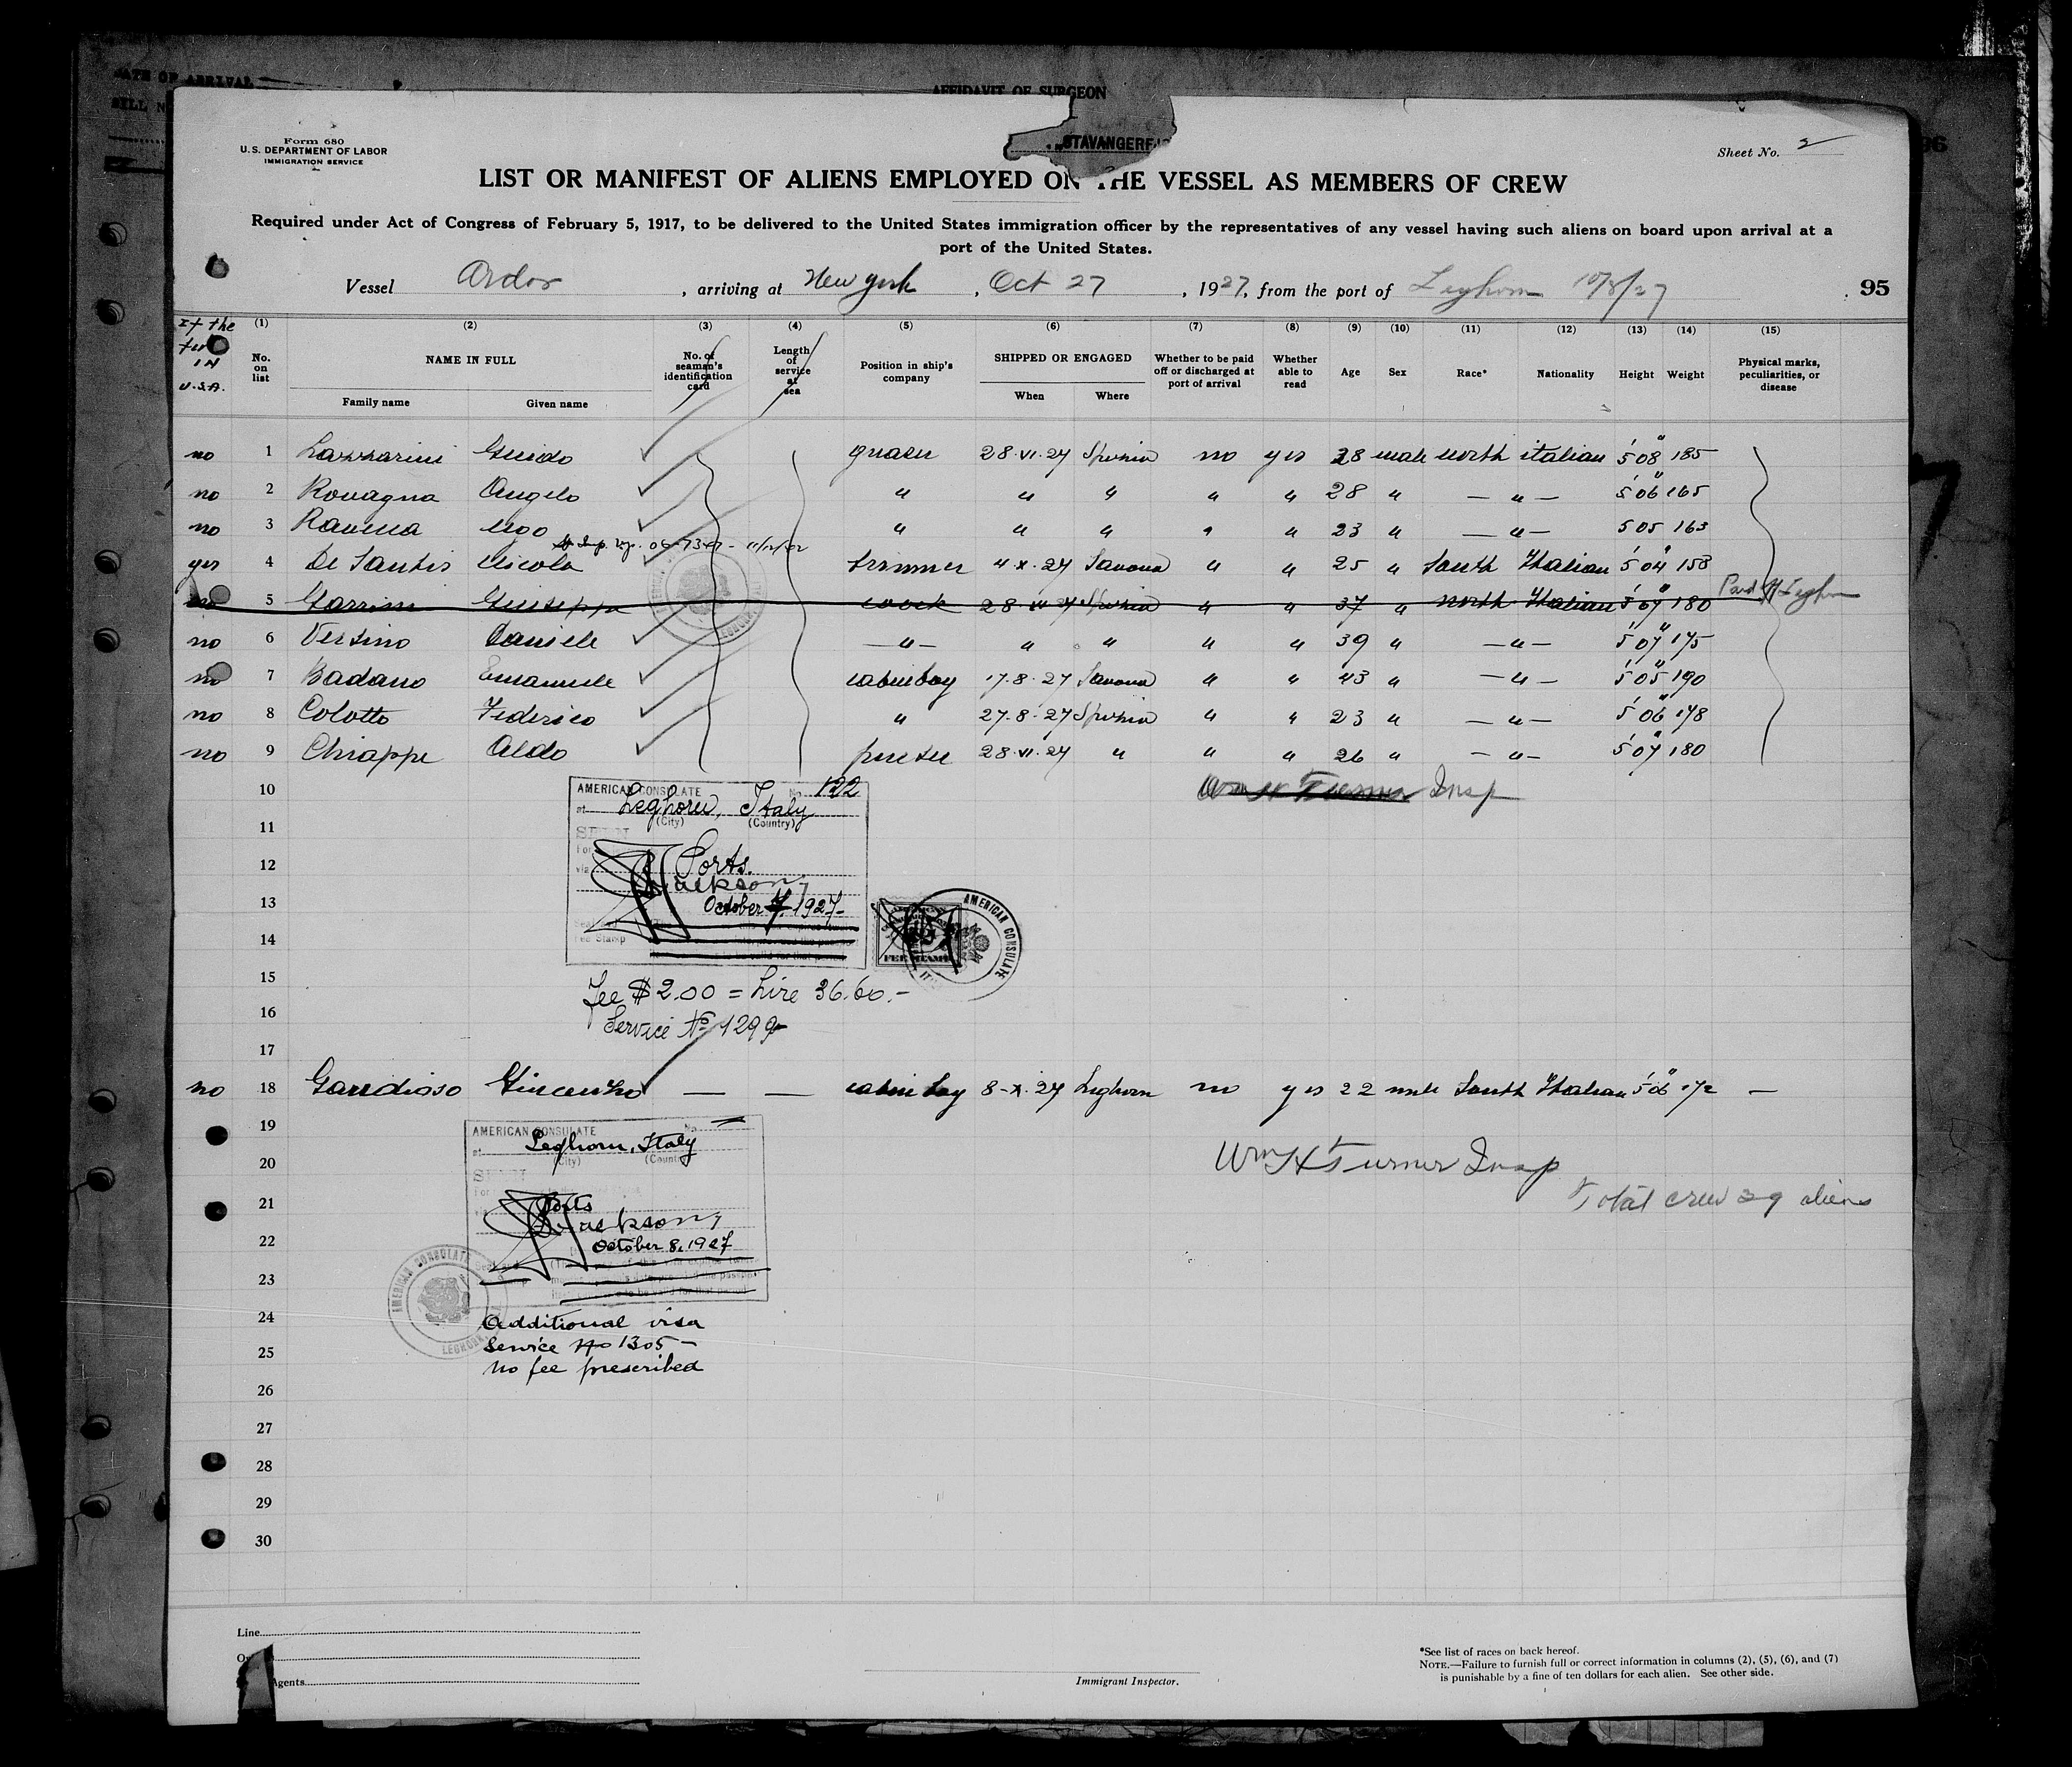 DATE OF ARRIVAL
AFFIDAVIT OF SURGEON
Form 680
U.S. DEPARTMENT OF LABOR
IMMIGRATION SERVICE
STAVANGERF
Sheet No. 2
LIST OR MANIFEST OF ALIENS EMPLOYED ON THE VESSEL AS MEMBERS OF CREW
Required under Act of Congress of February 5, 1917, to be delivered to the United States immigration officer by the representatives of any vessel having such aliens on board upon arrival at a
port of the United States.
Vessel Ardor, arriving at New York, Oct 27, 1927, from the port of Leghorn 10/8/27
95
(1) (2) (3) (4) (5) (6) (7) (8) (9) (10) (11) (12) (13) (14) (15)
If the
IN
U.S.A.
No. on list
NAME IN FULL
Family name Given name
No. of seaman's identification card
Length of service at sea
Position in ship's company
SHIPPED OR ENGAGED
When Where
Whether to be paid off or discharged at port of arrival
Whether able to read
Age
Sex
Race*
Nationality
Height
Weight
Physical marks, peculiarities, or disease
no 1 Lazzarini Guido 28·VI·27 Spezia no yes 28 male north italian 5' 08" 185
no 2 Rovagna Angelo " " " " " 28 " — " — 5' 06" 165
no 3 Ravina Ugo " " " " " 23 " — " — 5 05 163
yes 4 De Santis Nicola trimmer 4·X·27 Savona " " 25 " South Italian 5' 04" 158
no 5 Garrini Giuseppe cook 28·VI·27 Spezia " " 37 " north Italian 5' 07" 180 Leghorn
no 6 Versino Daniele — " — " " " " 39 " — " — 5' 07" 175
no 7 Badano Emanuele cabin boy 17·8·27 Savona " " 43 " — " — 5' 05" 190
no 8 Colotto Federico " 27·8·27 Spezia " " 23 " — " — 5' 06" 178
no 9 Chiappe Aldo 28·VI·27 " " " 26 " — " — 5' 07" 180
10
Wm H Turner Insp
AMERICAN CONSULATE No. 122
at Leghorn, Italy
(City) (Country)
11
SEEN
For
12
via Ports.
Jackson
October 7, 1927-
13
14
Fee Stamp
FEE STAMP
AMERICAN CONSULATE
15
Fee $2.00 = Lire 36.60.-
16
Service No 1299
17
no 18 Gaudioso Vincenzo — — cabin boy 8-X·27 Leghorn no yes 22 male South Italian 5' 06" 172 —
19
AMERICAN CONSULATE No.
at Leghorn, Italy
(City) (Country)
20
Wm H Turner Insp
SEEN
For
21
Total crew 39 aliens
Ports
Jackson,
22
October 8, 1927
23
AMERICAN CONSULATE
LEGHORN
24
Additional visa
25
Service No 1305-
no fee prescribed
26
27
28
29
30
Line
Agents
Immigrant Inspector.
*See list of races on back hereof.
NOTE.—Failure to furnish full or correct information in columns (2), (5), (6), and (7)
is punishable by a fine of ten dollars for each alien. See other side.